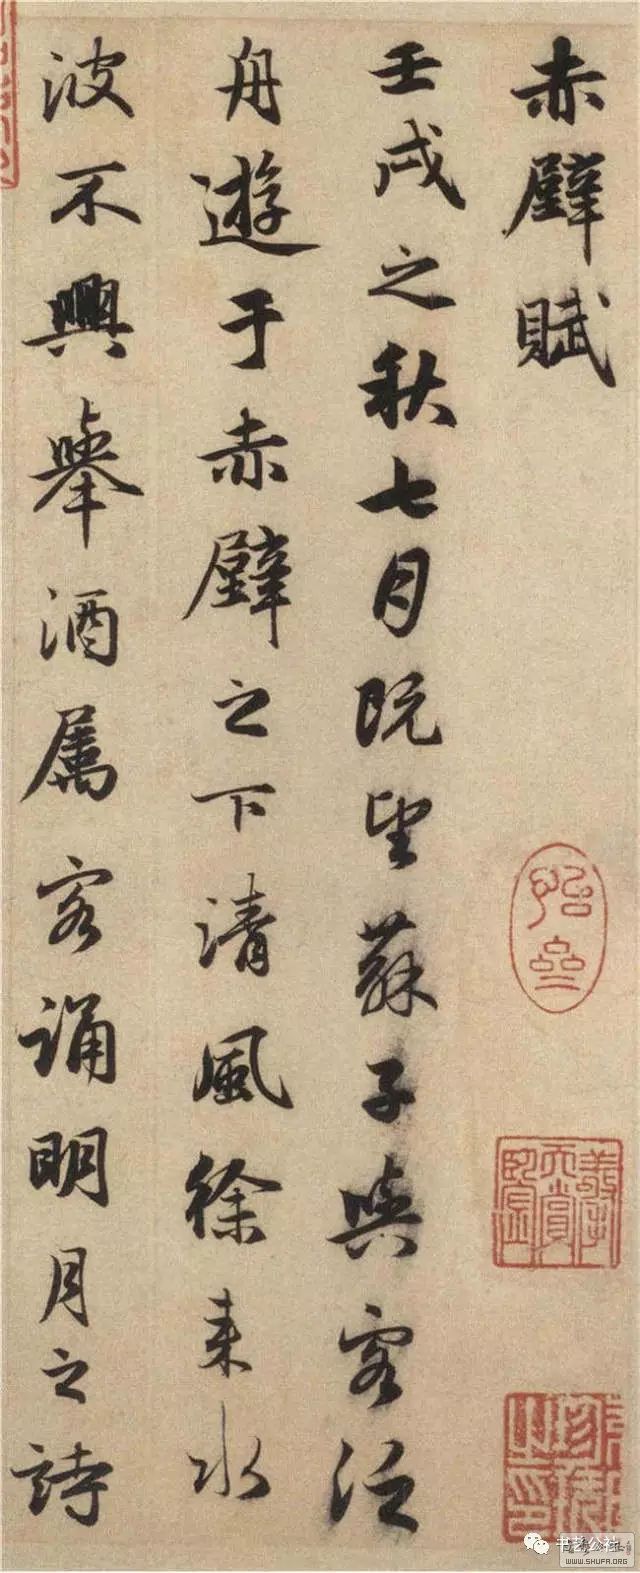 赤壁賦
壬戌之秋七月既望蘇子與客泛
舟遊于赤壁之下清風徐来水
波不興舉酒属客誦明月之詩
书艺公社
WWW.SHUFA.ORG